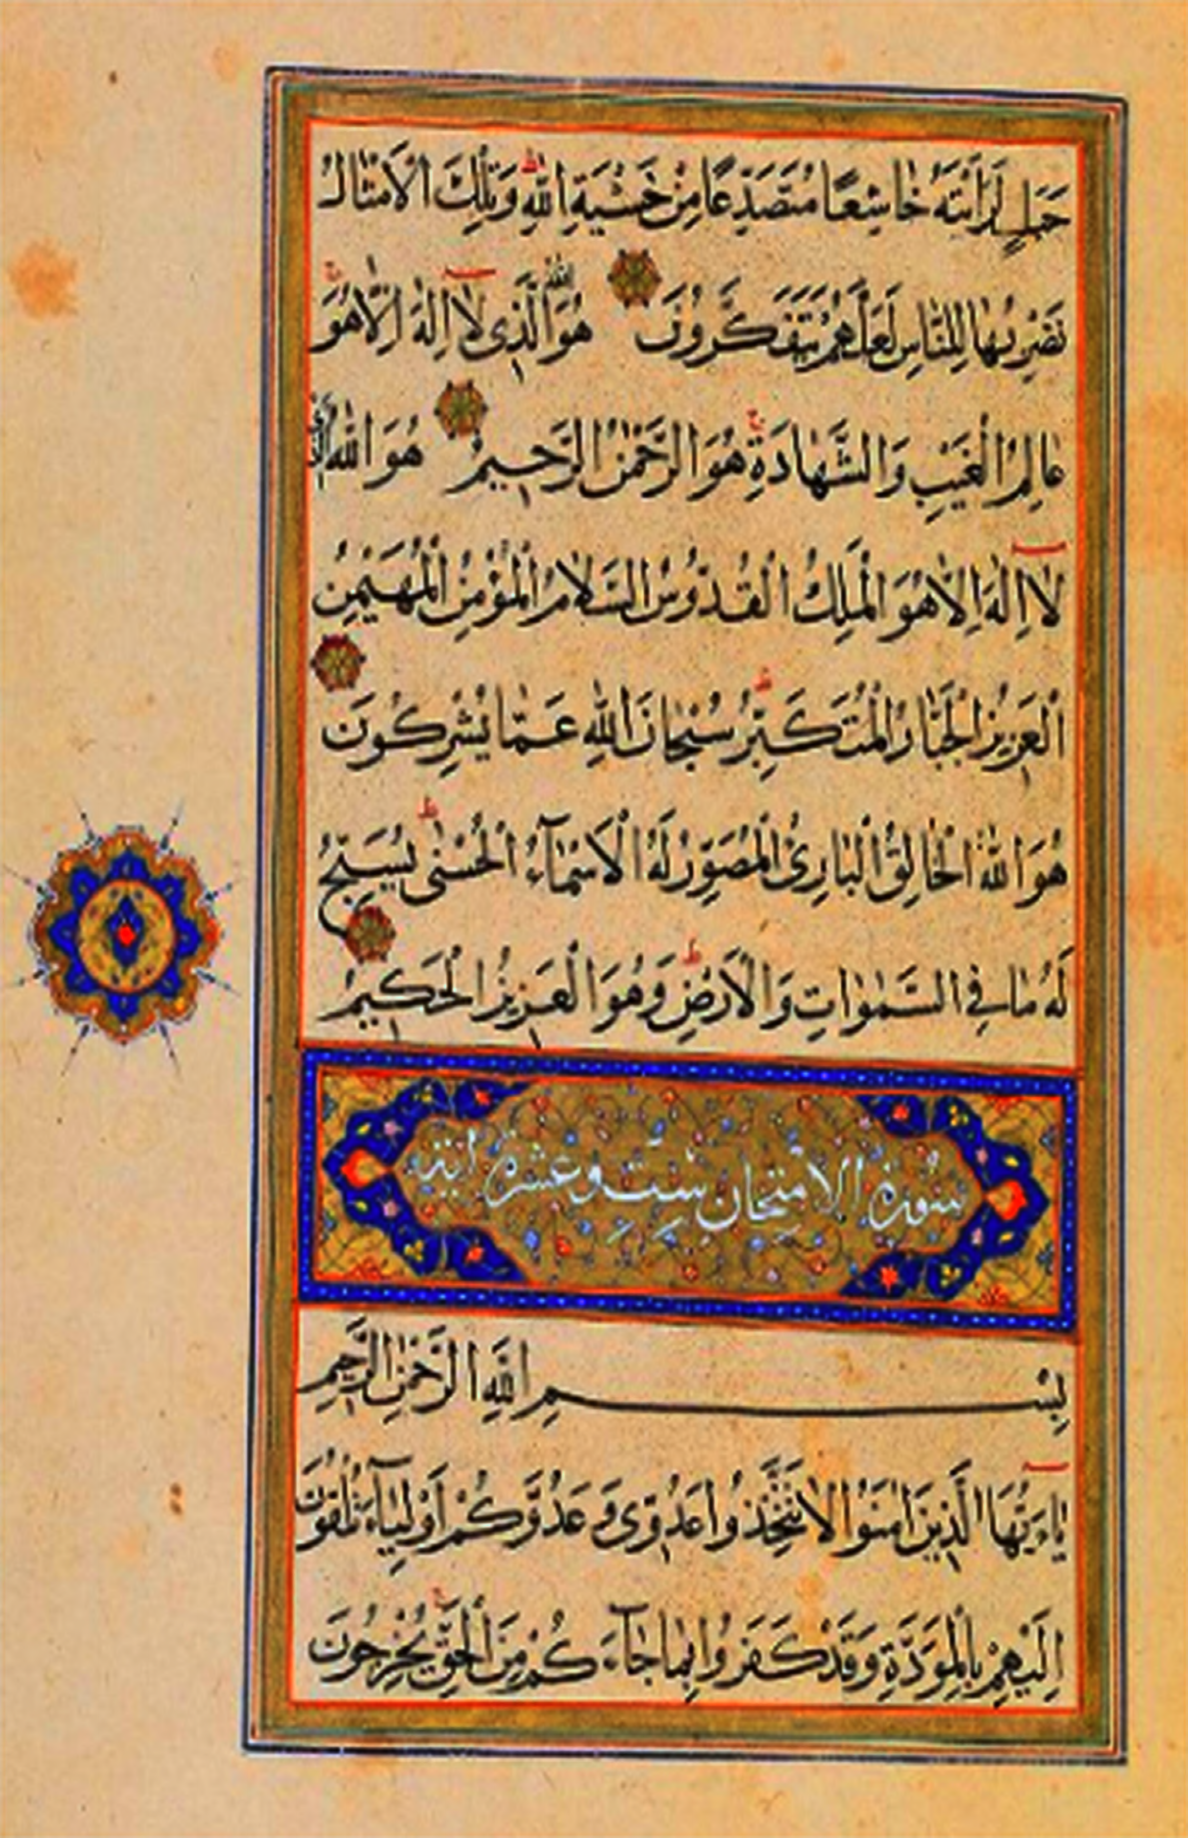 جَبَلٍ لَرَاَيْتَهُ خَاشِعًا مُتَصَدِّعًا مِنْ خَشْيَةِ اللّٰهِ وَتِلْكَ الْاَمْثَالُ
نَضْرِبُهَا لِلنَّاسِ لَعَلَّهُمْ يَتَفَكَّرُونَ هُوَ اللّٰهُ الَّذِى لَا اِلٰهَ اِلَّا هُوَ
عَالِمُ الْغَيْبِ وَالشَّهَادَةِ هُوَ الرَّحْمٰنُ الرَّحِيمُ هُوَ اللّٰهُ الَّذِى
لَا اِلٰهَ اِلَّا هُوَ الْمَلِكُ الْقُدُّوسُ السَّلَامُ الْمُؤْمِنُ الْمُهَيْمِنُ
الْعَزِيزُ الْجَبَّارُ الْمُتَكَبِّرُ سُبْحَانَ اللّٰهِ عَمَّا يُشْرِكُونَ
هُوَ اللّٰهُ الْخَالِقُ الْبَارِئُ الْمُصَوِّرُ لَهُ الْاَسْمَآءُ الْحُسْنٰى يُسَبِّحُ
لَهُ مَا فِى السَّمٰوَاتِ وَالْاَرْضِ وَهُوَ الْعَزِيزُ الْحَكِيمُ
سُورَةُ الِامْتِحَانِ سِتَّ وَعَشْرَةَ اٰيَة
بِسْمِ اللّٰهِ الرَّحْمٰنِ الرَّحِيمِ
يَاءَيُّهَا الَّذِينَ اٰمَنُوا لَا تَتَّخِذُوا عَدُوِّى وَعَدُوَّكُمْ اَوْلِيَآءَ تُلْقُونَ
اِلَيْهِمْ بِالْمَوَدَّةِ وَقَدْ كَفَرُوا بِمَا جَآءَكُمْ مِنَ الْحَقِّ يُخْرِجُونَ